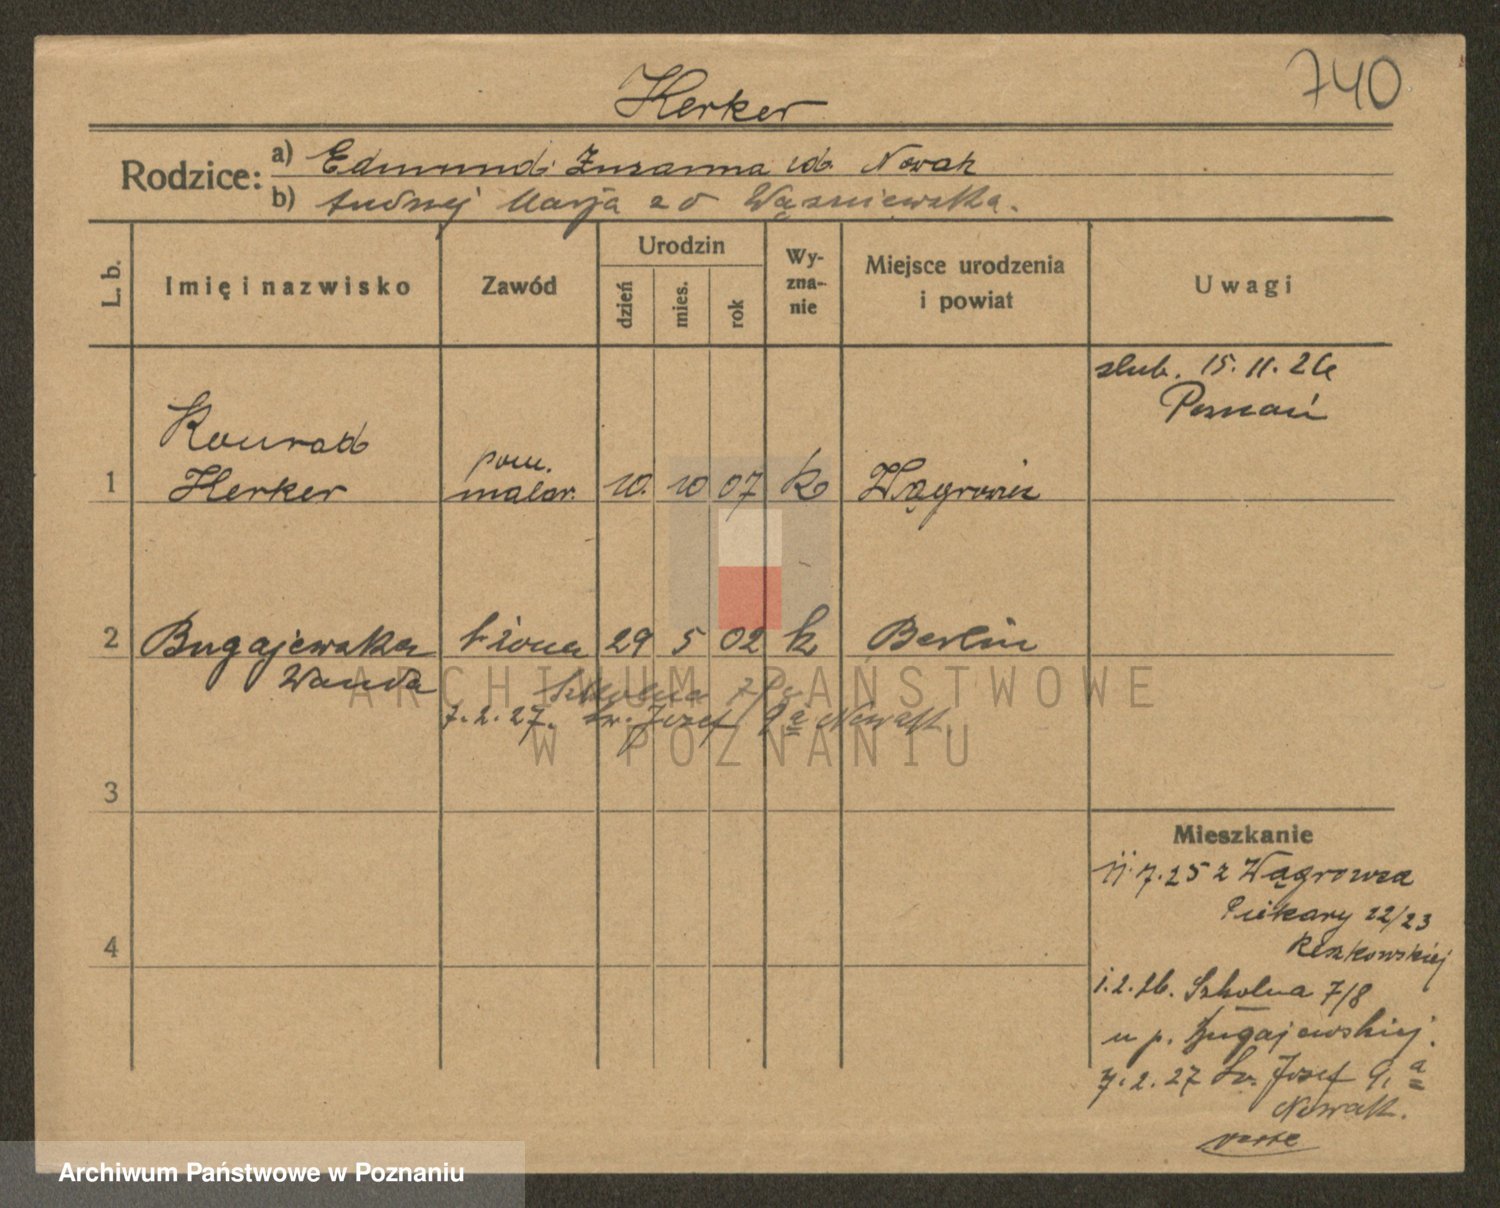 740
Herker
Rodzice: a) Edmund Zuzanna do. Nowak
b) Andrzej Marja z d Waśniewska.
L. b. Imię i nazwisko Zawód Urodzin dzień mies. rok Wy-zna-nie Miejsce urodzenia i powiat Uwagi
ślub. 15.11.26
Poznań
Konrad
1 Herker pom. malar. 10. 10 07 k Wągrowiec
2 Bugajewska żona 29 5 02 k Berlin
Wanda
Szkolna 7/8
7.2.27. Św. Józef 9 a Nowak.
3
Mieszkanie
11.7.25 z Wągrowca
Piekary 22/23
Reszkowskiej
4
1.2.26. Szkolna 7/8
u p. Bugajewskiej.
7.2.27 Św. Józef 9, a
Nowak.
verte
ARCHIWUM PAŃSTWOWE
W POZNANIU
Archiwum Państwowe w Poznaniu